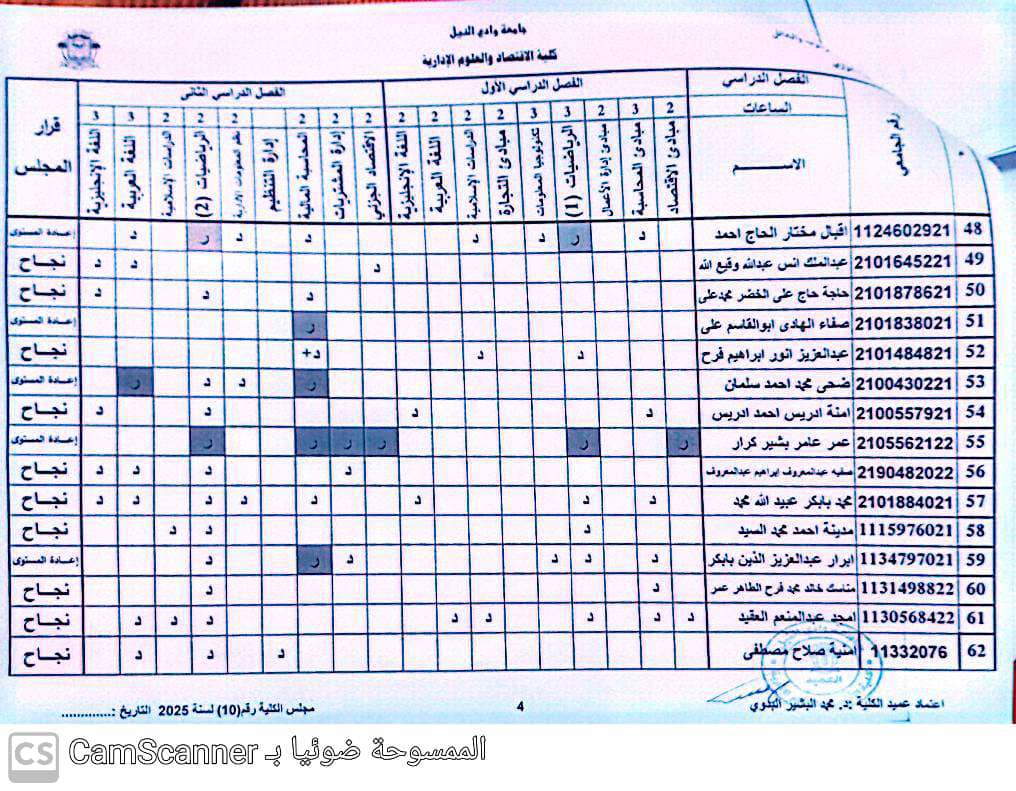 جامعة وادي النيل
كلية الاقتصاد والعلوم الإدارية
رقم الجامعي الفصل الدراسي الفصل الدراسي الأول الفصل الدراسي الثانى قرار المجلس
الساعات 2 3 2 3 3 2 2 2 2 2 2 2 2 2 2 3 3
الاســـــم مبادئ الاقتصاد مبادئ المحاسبة مبادئ إدارة الأعمال الرياضيات (1) تكنولوجيا المعلومات مبادئ التجارة الدراسات الإسلامية اللغة العربية اللغة الإنجليزية الاقتصاد الجزئي إدارة المشتريات المحاسبة المالية إدارة التنظيم نظم المعلومات الإدارية الرياضيات (2) الدراسات الإسلامية اللغة العربية اللغة الإنجليزية
48 1124602921 اقبال مختار الحاج احمد د ر د د د د ر د إعــادة المستوى
49 2101645221 عبدالملك انس عبدالله وقيع الله د د د نجــاح
50 2101878621 حاجة حاج على الخضر محمدعلى د د د نجــاح
51 2101838021 صفاء الهادى ابوالقاسم على ر إعــادة المستوى
52 2101484821 عبدالعزيز انور ابراهيم فرح د د د+ نجــاح
53 2100430221 ضحى محمد احمد سلمان ر د د ر إعــادة المستوى
54 2100557921 امنة ادريس احمد ادريس د د د د نجــاح
55 2105562122 عمر عامر بشير كرار ر ر ر ر ر ر إعــادة المستوى
56 2190482022 صفيه عبدالمعروف ابراهيم عبدالمعروف د د د د نجــاح
57 2101884021 محمد بابكر عبيد الله محمد د د د د د د د د نجــاح
58 1115976021 مدينة احمد محمد السيد د د د نجــاح
59 1134797021 ابرار عبدالعزيز الذين بابكر د د د د ر د إعــادة المستوى
60 1131498822 مناسك خالد محمد فرح الطاهر عمر د د نجــاح
61 1130568422 امجد عبدالمنعم العقيد د د د د د د د د نجــاح
62 11332076 امنية صلاح مصطفى د د د نجــاح
اعتماد عميد الكلية :د. محمد البشير البدوي 4 مجلس الكلية رقم(10) لسنة 2025 التاريخ :.............
الممسوحة ضوئيا بـ CamScanner
CS